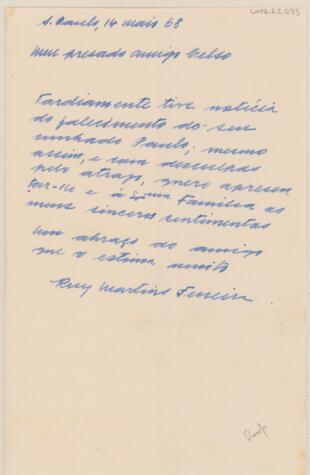 S. Paulo, 14 maio 68
Meu presado amigo Celso
Tardiamente tive notícia
do falecimento do seu
cunhado Paulo; mesmo
assim, e com desculpas
pelo atrazo, quero apresen
tar-lhe e à sua Familia as
meus sinceros sentimentos
Um abraço do amigo
que o estima muito
Ruy Martins Ferreira